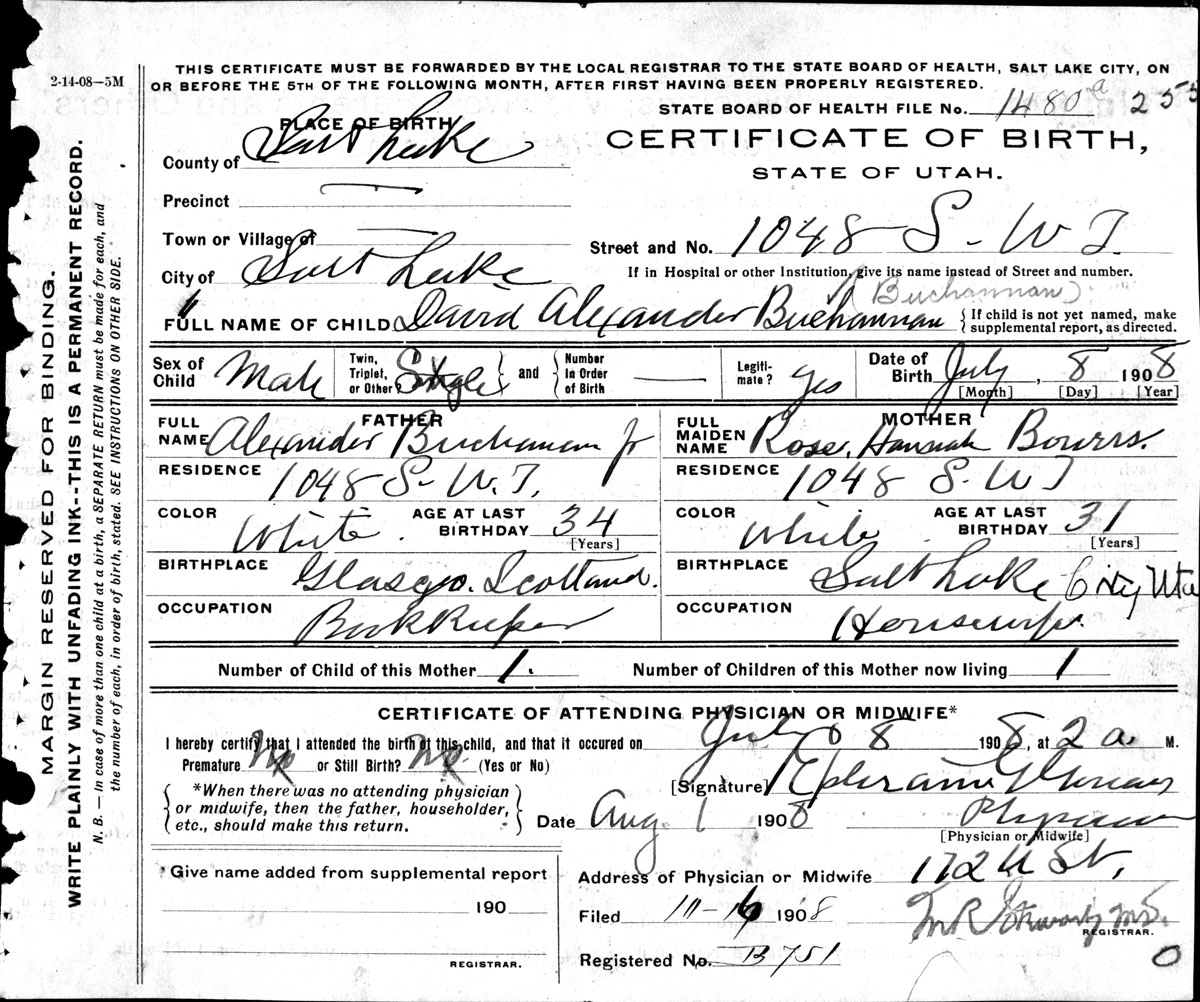 2-14-08—5M
THIS CERTIFICATE MUST BE FORWARDED BY THE LOCAL REGISTRAR TO THE STATE BOARD OF HEALTH, SALT LAKE CITY, ON
OR BEFORE THE 5TH OF THE FOLLOWING MONTH, AFTER FIRST HAVING BEEN PROPERLY REGISTERED.
STATE BOARD OF HEALTH FILE No. 1480 a 255
PLACE OF BIRTH
CERTIFICATE OF BIRTH,
STATE OF UTAH.
County of Salt Lake
Precinct —
Town or Village of —
Street and No. 1048 S- W T
City of Salt Lake
If in Hospital or other Institution, give its name instead of Street and number.
(Buchannan)
FULL NAME OF CHILD David Alexander Buchannan {If child is not yet named, make supplemental report, as directed.
Sex of Child Male Twin, Triplet, or Other? Single and Number in Order of Birth — Legiti-mate? yes Date of Birth July, 8 1908
[Month] [Day] [Year]
FATHER MOTHER
FULL NAME Alexander Buchanan Jr FULL MAIDEN NAME Rose Hannah Bowers.
RESIDENCE 1048 S- W. T. RESIDENCE 1048 S. W T
COLOR White. AGE AT LAST BIRTHDAY 34 [Years] COLOR White. AGE AT LAST BIRTHDAY 31 [Years]
BIRTHPLACE Glasgo. Scotland. BIRTHPLACE Salt Lake City Uta
OCCUPATION Bookkeeper OCCUPATION Housewife.
Number of Child of this Mother 1. Number of Children of this Mother now living 1
CERTIFICATE OF ATTENDING PHYSICIAN OR MIDWIFE*
I hereby certify that I attended the birth of this child, and that it occured on July 8 1908, at 2 a. M.
Premature No or Still Birth? No. (Yes or No)
[Signature] Ephraim G
{*When there was no attending physician
or midwife, then the father, householder,
etc., should make this return.}
Date Aug 1 1908 Physician
[Physician or Midwife]
Give name added from supplemental report
190
REGISTRAR.
Address of Physician or Midwife 172 St,
Filed 10-6 1908
REGISTRAR.
Registered No. B751
0
MARGIN RESERVED FOR BINDING.
WRITE PLAINLY WITH UNFADING INK--THIS IS A PERMANENT RECORD.
N. B.— In case of more than one child at a birth, a SEPARATE RETURN must be made for each, and
the number of each, in order of birth, stated. SEE INSTRUCTIONS ON OTHER SIDE.